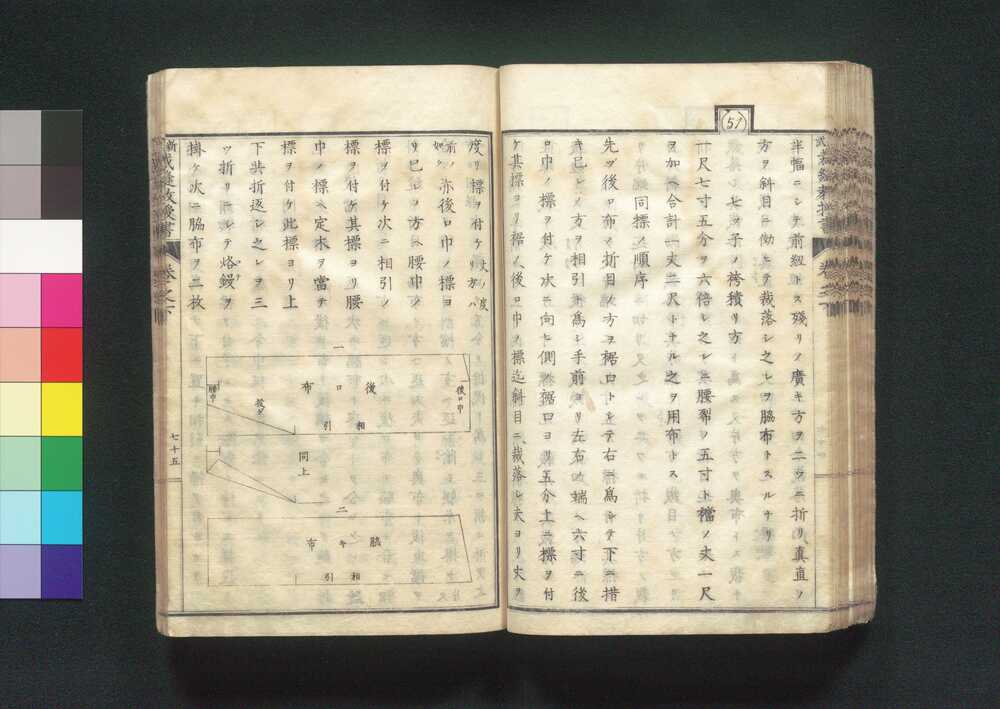 51
半幅ニシテ前紐トス殘リノ廣キ方ヲ二ツニ折リ真直ノ
方ヲ斜目ニ拗ヒテ裁落シ之レヲ脇布トスルナリ
七八才男子ノ袴積リ方
一尺七寸五分ヲ六倍シ之レニ腰卷ノ五寸ト襠ノ丈一尺
ヲ加ヘ合計一丈二尺トナル之ヲ用布トス
同標ノ順序
先ツ後ロ布ノ折目ノ方ヲ裾口トシテ右ニ為シテ下ニ措
キ已レノ方ヲ相引ト為シ手前ヨリ左右ノ端ヘ六寸ニ後
ロ巾ノ標ヲ付ケ次ニ向ヒ側裾口ヨリ五分上ニ標ヲ付
ケ其標ヨリ裾ノ後ロ巾ノ標迄斜目ニ裁落シ夫ヨリ丈ヲ
度リ標ヲ付ケ丈ノ度リ方ハ
前ノ如シ亦後ロ巾ノ標ヨ
リ已レノ方ヘ腰巾ノ
標ヲ付ケ次ニ相引ノ
標ヲ付ケ其標ヨリ腰
巾ノ標ヘ定木ヲ當テ
標ヲ付ケ此標ヨリ上
下共折返シ之レヲ三
ツ折リニシテ烙鏝ヲ
掛ケ次ニ脇布ヲ二枚
一
後ロ布
後ロ巾
腰巾
投ゲ
相引
同上
二
脇キ布
相引
七十五